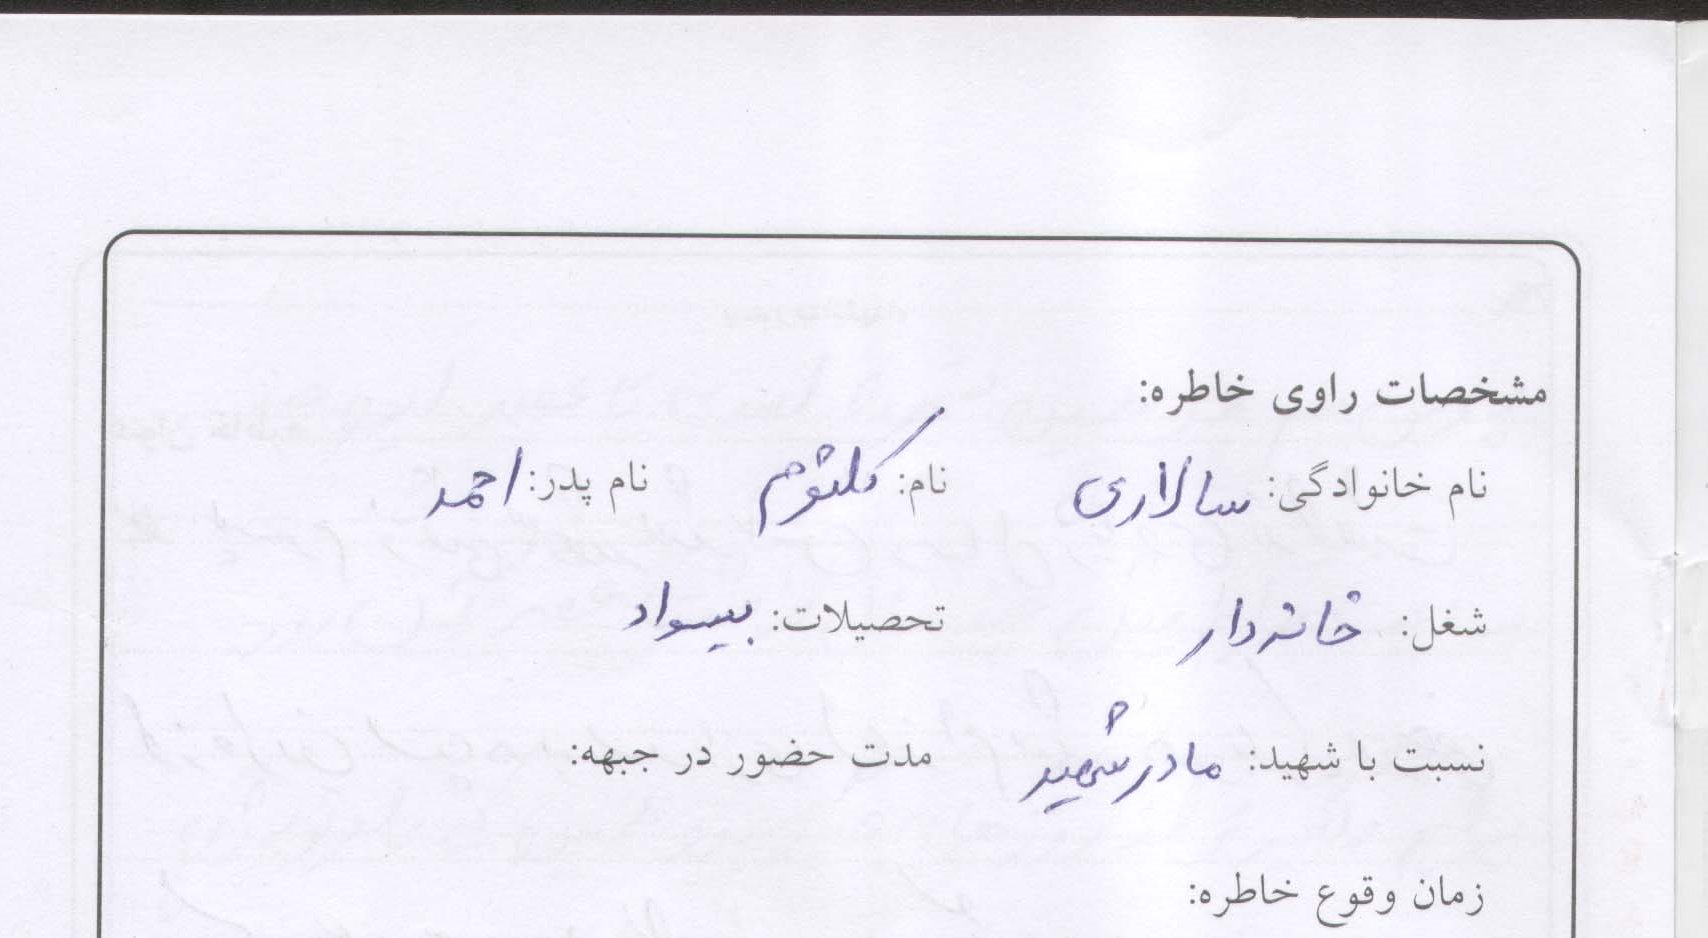 مشخصات راوی خاطره:
نام خانوادگی: سالاری نام: کلثوم نام پدر: احمد
شغل: خانه‌دار تحصیلات: بیسواد
نسبت با شهید: مادر شهید مدت حضور در جبهه:
زمان وقوع خاطره: